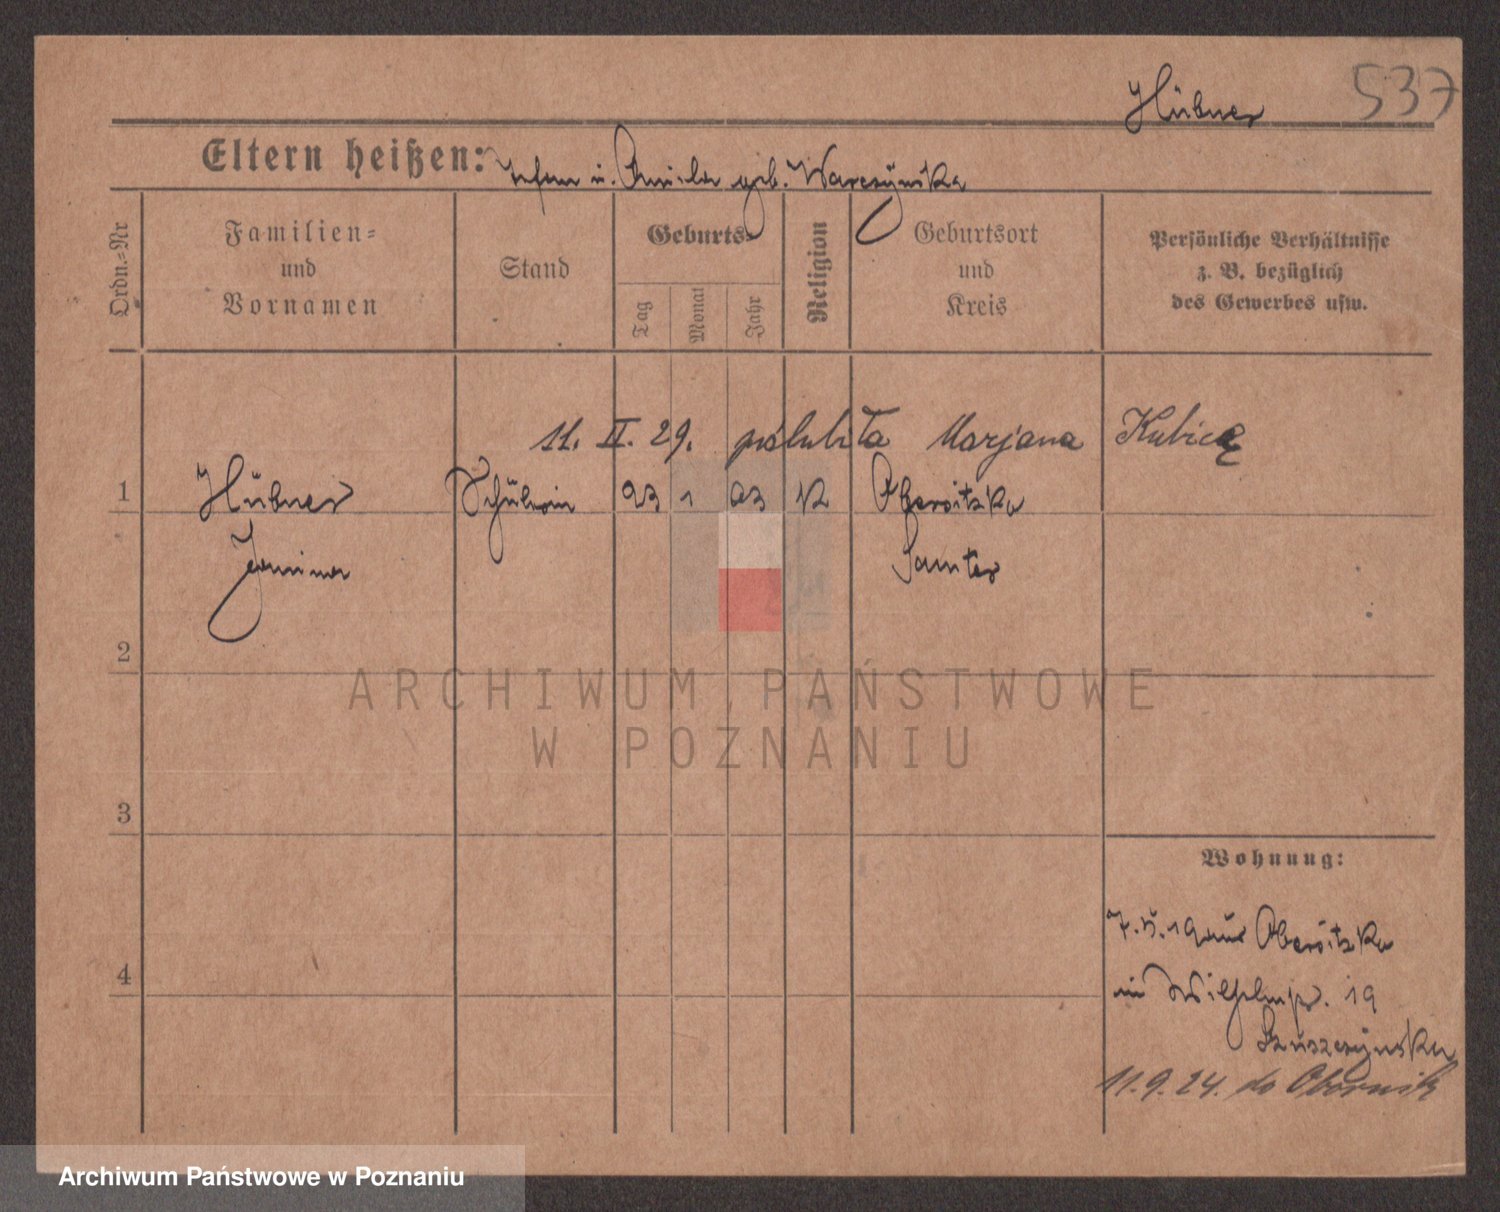 Hübner 537
Eltern heißen: u. geb. Warczynska
Ordn.-Nr
Familien-
und
Vornamen
Stand
Geburts-
Tag
Monat
Jahr
Religion
Geburtsort
und
Kreis
Persönliche Verhältnisse
z. B. bezüglich
des Gewerbes usw.
11. II. 29. poślubiła Marjana Kubicę
1 Hübner Schülerin 23 1 03 K Obersitzko
Janina Samter
2
ARCHIWUM PAŃSTWOWE
W POZNANIU
3
Wohnung:
19 aus Obersitzko
4
in Wilhelmpl. 19
11.9.24. do Obornik
Archiwum Państwowe w Poznaniu